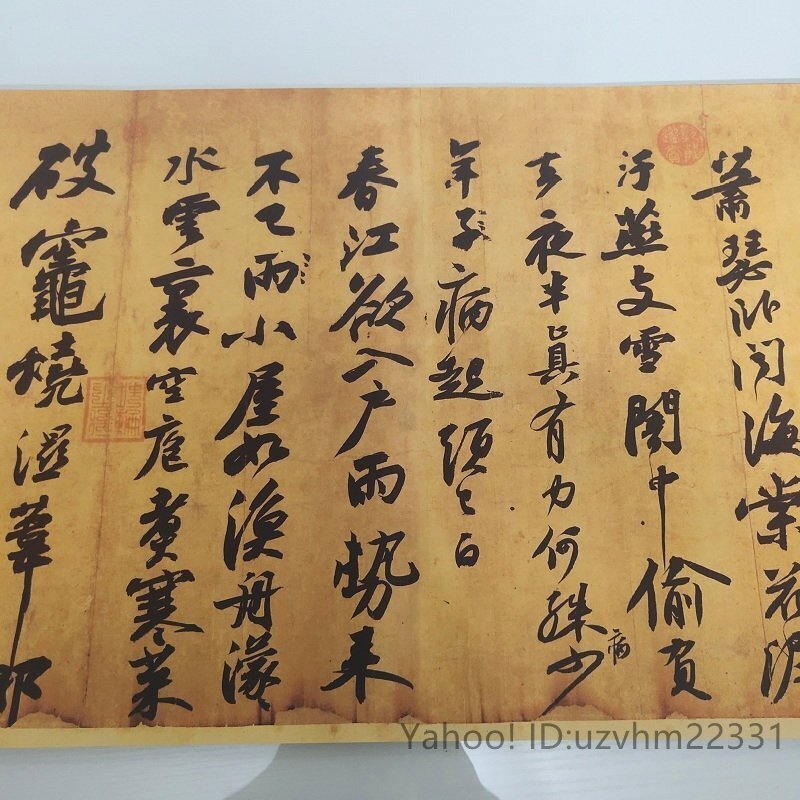 蕭瑟臥聞海棠花泥
汙燕支雪闇中偷負
去夜半真有力何殊少
病
年子病起頭已白
春江欲入戶雨勢來
不已雨小屋如漁舟濛々
水雲裏空庖煮寒菜
破竈燒濕葦那
Yahoo! ID:uzvhm22331